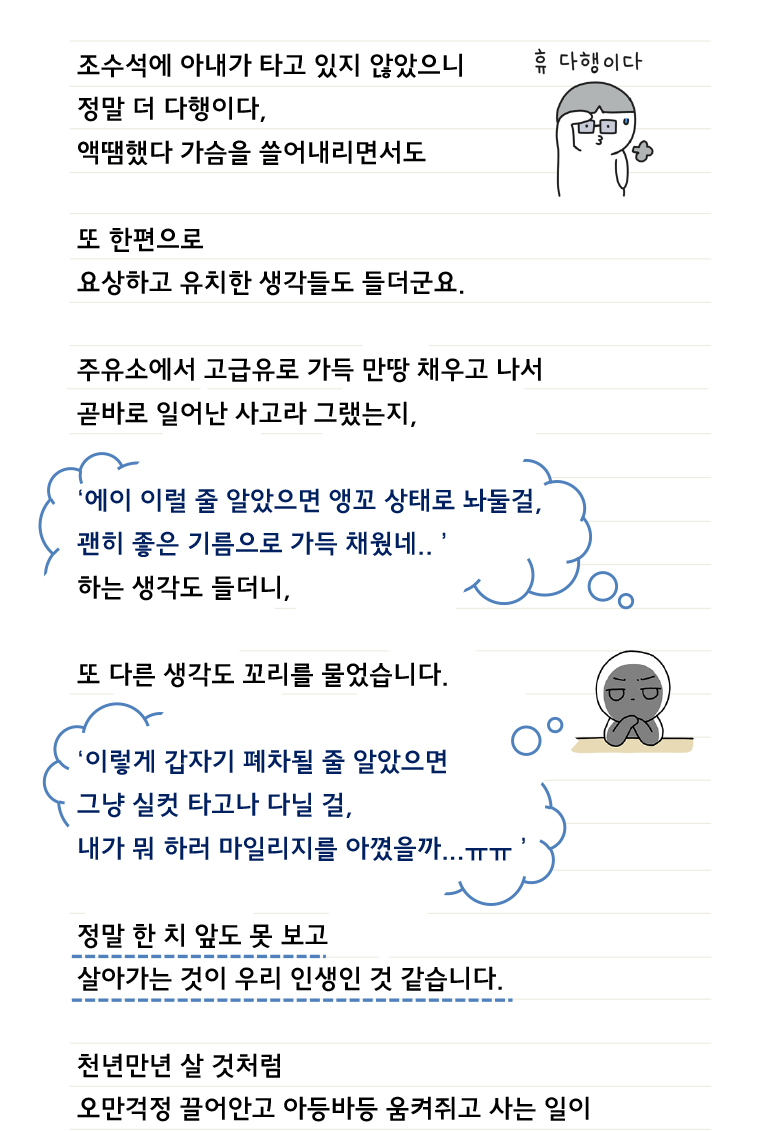 조수석에 아내가 타고 있지 않았으니
휴 다행이다
정말 더 다행이다,
액땜했다 가슴을 쓸어내리면서도
또 한편으로
요상하고 유치한 생각들도 들더군요.
주유소에서 고급유로 가득 만땅 채우고 나서
곧바로 일어난 사고라 그랬는지,
‘에이 이럴 줄 알았으면 앵꼬 상태로 놔둘걸,
괜히 좋은 기름으로 가득 채웠네.. ’
하는 생각도 들더니,
또 다른 생각도 꼬리를 물었습니다.
‘이렇게 갑자기 폐차될 줄 알았으면
그냥 실컷 타고나 다닐 걸,
내가 뭐 하러 마일리지를 아꼈을까...ㅠㅠ ’
정말 한 치 앞도 못 보고
살아가는 것이 우리 인생인 것 같습니다.
천년만년 살 것처럼
오만걱정 끌어안고 아등바등 움켜쥐고 사는 일이